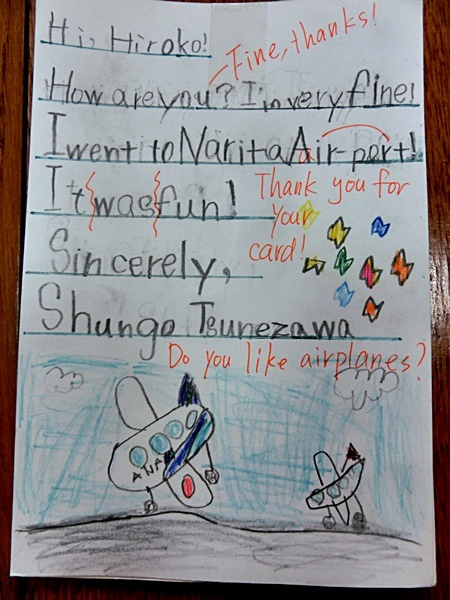 Hi, Hiroko!
Fine, thanks!
How are you? I'm very fine!
I went to Narita Air-port!
It was fun!
Thank you for
your
card!
Sincerely,
Shungo Tsunezawa
Do you like airplanes?
ANA